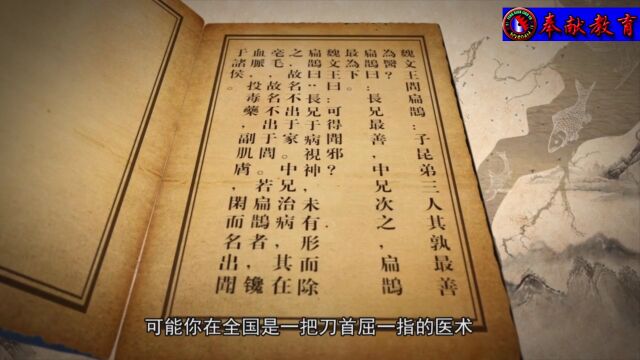 奉献教育
魏文王問扁鵲：子昆弟三人其孰最善
為醫？
扁鵲曰：長兄最善，中兄次之，扁鵲
最為下。
魏文王曰：可得聞邪？
扁鵲曰：長兄于病視神，未有形而除
之，故名不出于家。中兄治病，其在
毫毛，故名不出于閭。若扁鵲者，镵
血脈，投毒藥，副肌膚，閑而名出聞
于諸侯。
可能你在全国是一把刀首屈一指的医术